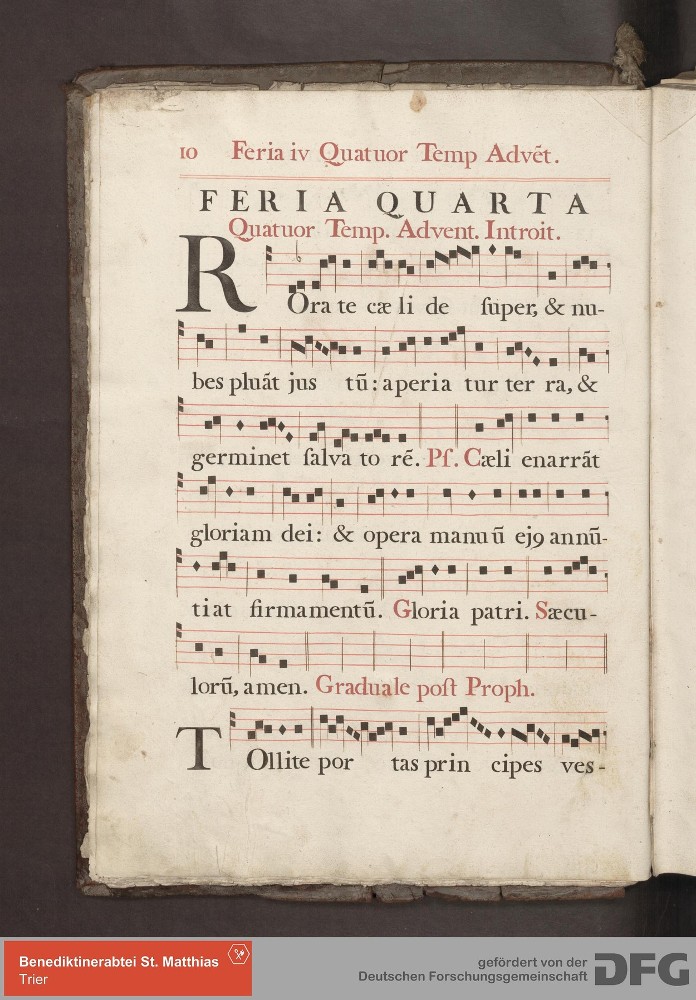 10 Feria iv Quatuor Temp Advẽt.
FERIA QUARTA
Quatuor Temp. Advent. Introit.
ROrate cæli de ſuper, & nu-
bes pluãt jus tũ: aperia tur ter ra, &
germinet ſalva to rẽ. Pſ. Cæli enarrãt
gloriam dei: & opera manuũ ej9 annũ-
tiat firmamentũ. Gloria patri. Sæcu-
lorũ, amen. Graduale poſt Proph.
TOllite por tas prin cipes ves-
Benediktinerabtei St. Matthias
Trier
gefördert von der
Deutschen Forschungsgemeinschaft
DFG